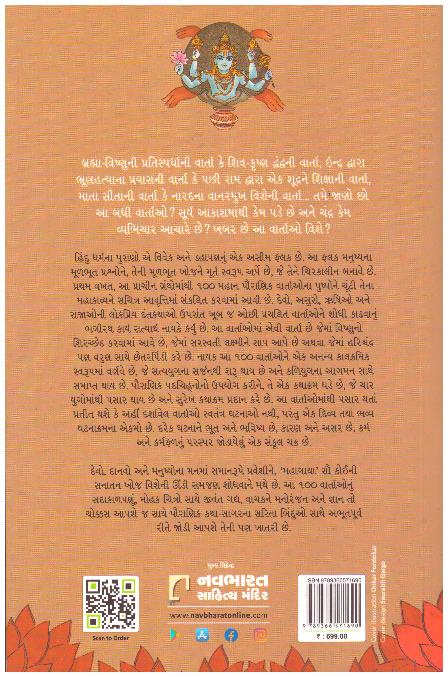 બ્રહ્મા-વિષ્ણુની પ્રતિસ્પર્ધાની વાર્તા કે શિવ-કૃષ્ણ દ્વંદ્વની વાર્તા, ઇન્દ્ર દ્વારા
ભ્રૂણહત્યાના પ્રયાસની વાર્તા કે પછી રામ દ્વારા એક શૂદ્રને શિક્ષાની વાર્તા,
માતા સીતાની વાર્તા કે નારદના વાનરમુખ વિશેની વાર્તા... તમે જાણો છો
આ બધી વાર્તાઓ? સૂર્ય આકાશમાંથી કેમ પડે છે અને ચંદ્ર કેમ
વ્યભિચાર આચારે છે? ખબર છે આ વાર્તાઓ વિશે?
હિંદુ ધર્મના પુરાણો એ વિવેક અને ડહાપણનું એક અસીમ ફલક છે. આ ફલક મનુષ્યના
મૂળભૂત પ્રશ્નોને, તેની મૂળભૂત ખોજને મૂર્ત સ્વરૂપ આપે છે, જે તેને ચિરકાલીન બનાવે છે.
પ્રથમ વખત, આ પ્રાચીન ગ્રંથોમાંથી ૧૦૦ મહાન પૌરાણિક વાર્તાઓના પુષ્પોને ચૂંટી તેના
મહાકાવ્યને સચિત્ર આવૃત્તિમાં સંકલિત કરવામાં આવી છે. દેવો, અસુરો, ઋષિઓ અને
રાજાઓની લોકપ્રિય દંતકથાઓ ઉપરાંત ખૂબ જ ઓછી પ્રચલિત વાર્તાઓને શોધી કાઢવાનું
ભગીરથ કાર્ય સત્યાર્થ નાયકે કર્યું છે. આ વાર્તાઓમાં એવી વાર્તા છે જેમાં વિષ્ણુનો
શિરચ્છેદ કરવામાં આવે છે, જેમાં સરસ્વતી લક્ષ્મીને શાપ આપે છે અથવા જેમાં હરિશ્ચંદ્ર
પણ વરુણ સાથે છેતરપિંડી કરે છે. નાયક આ ૧૦૦ વાર્તાઓને એક અનન્ય કાલક્રમિક
સ્વરૂપમાં વર્ણવે છે, જે સત્યયુગના સર્જનથી શરૂ થાય છે અને કળિયુગના આગમન સાથે
સમાપ્ત થાય છે. પૌરાણિક પદચિહ્નોનો ઉપયોગ કરીને, તે એક કથાક્રમ ઘડે છે, જે ચાર
યુગોમાંથી પસાર થાય છે અને સુરેખ કથાક્રમ પ્રદાન કરે છે. આ વાર્તાઓમાંથી પસાર થતાં
પ્રતીત થશે કે અહીં દર્શાવેલ વાર્તાઓ સ્વતંત્ર ઘટનાઓ નથી, પરંતુ એક દિવ્ય તથા ભવ્ય
ઘટનાક્રમના એકમો છે. દરેક ઘટનાને ભૂત અને ભવિષ્ય છે, કારણ અને અસર છે, કર્મ
અને કર્મફળનું પરસ્પર જોડાયેલું એક સંકુલ ચક્ર છે.
દેવો, દાનવો અને મનુષ્યોના મનમાં સમાનરૂપે પ્રવેશીને, 'મહાગાથા' સૌ કોઈની
સનાતન ખોજ વિશેની ઊંડી સમજણ શોધવાને મથે છે. આ ૧૦૦ વાર્તાઓનું
સદાકાળપણું, મોહક ચિત્રો સાથે જીવંત ગદ્ય, વાચકને મનોરંજન અને જ્ઞાન તો
ચોક્કસ આપશે જ સાથે પૌરાણિક કથા-સાગરના સરિતા બિંદુઓ સાથે અભૂતપૂર્વ
રીતે જોડી આપશે તેની પણ ખાતરી છે.
મુખ્ય વિક્રેતા
નવભારત
સાહિત્ય મંદિર
www.navbharatonline.com
Scan to Order
ISBN 9789366571690
9 789366 571690
₹ : 699.00
Cover illustration Onkar Fondekar
Cover design Saurabh Garge